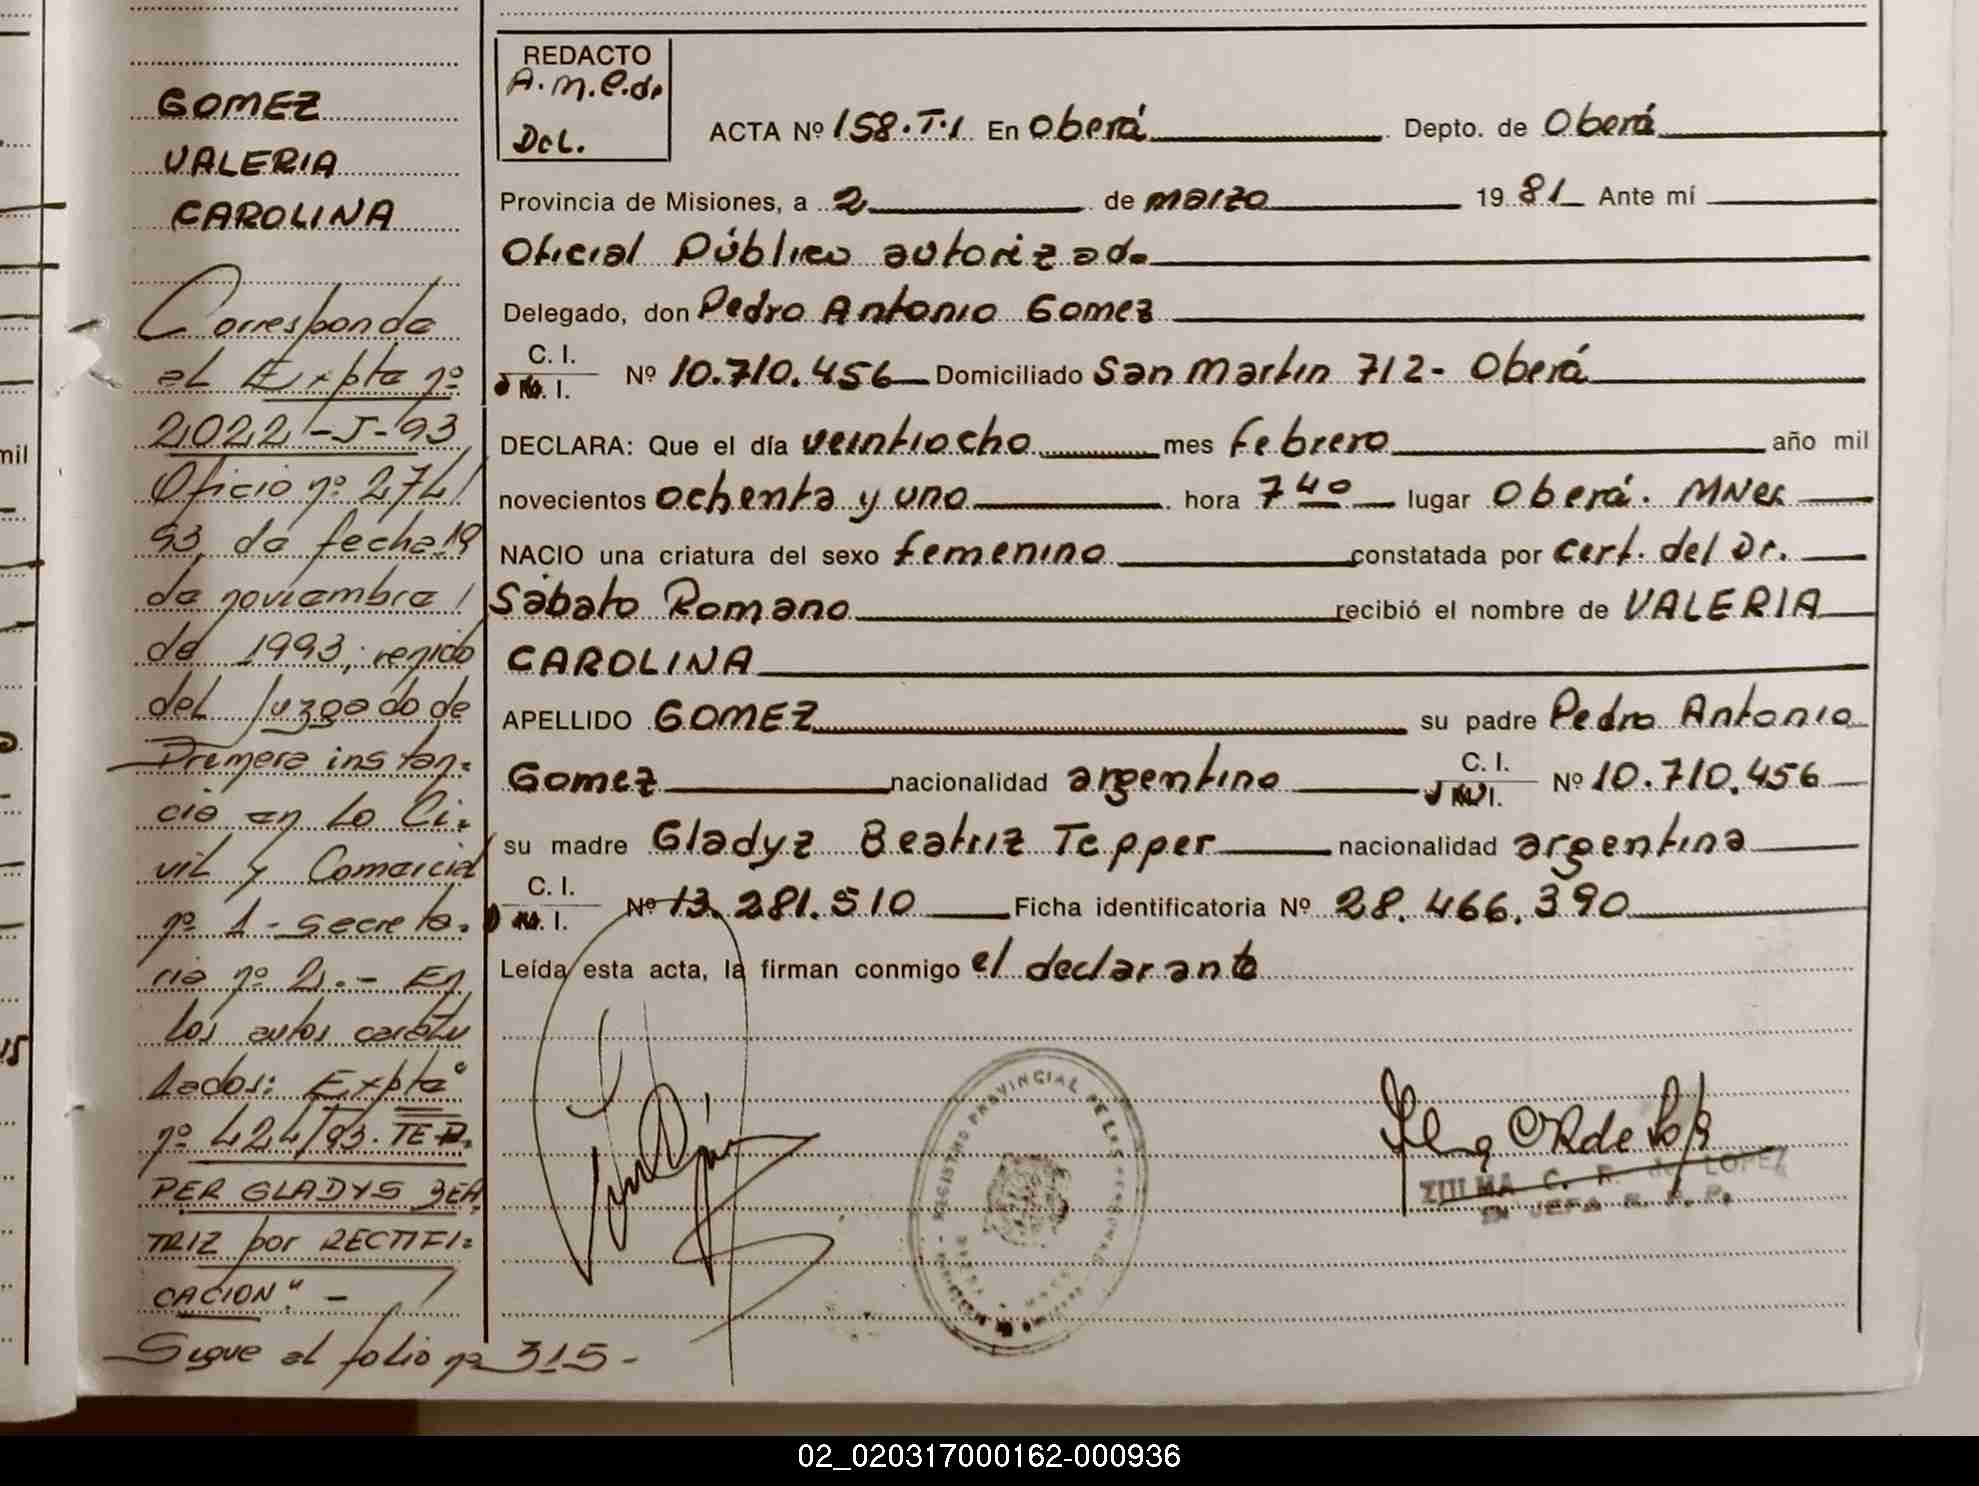 GOMEZ
VALERIA
CAROLINA
Corresponde
al Expte nº
2022-J-93
Oficio nº 274/
93, de fecha 19
de noviembre/
de 1993; venido
del Juzgado de
Primera instan=
cia en lo Ci=
vil y Comercial
nº 1-secreta=
ria nº 2.- En
los autos caratu
lados: Expte"
nº 424/93. TEP=
PER GLADYS BEA
TRIZ por RECTIFI=
CACION".-
Sigue al folio nº 315-
REDACTO
A.M.C.de
DcL.
ACTA Nº 158.T.1 En Oberá Depto. de Oberá
Provincia de Misiones, a 2 de marzo 1981 Ante mí
Oficial Público autorizado
Delegado, don Pedro Antonio Gomez
C. I.
Nº 10.710.456 Domiciliado San Martin 712- Oberá
I.
DECLARA: Que el día veintiocho mes febrero año mil
novecientos ochenta y uno hora 7 40 lugar Oberá. MNes
NACIO una criatura del sexo femenino constatada por cert. del Dr.
Sábato Romano recibió el nombre de VALERIA
CAROLINA
APELLIDO GOMEZ su padre Pedro Antonio
Gomez nacionalidad argentino C. I. Nº 10.710.456
I.
su madre Gladyz Beatriz Tepper nacionalidad argentina
C. I.
Nº 13.281.510 Ficha identificatoria Nº 28.466.390
I.
Leída esta acta, la firman conmigo el declarante
REGISTRO PROVINCIAL DE LAS PERSONAS
ZULMA C. R. de LOPEZ
JEFA R. P. P.
02_020317000162-000936